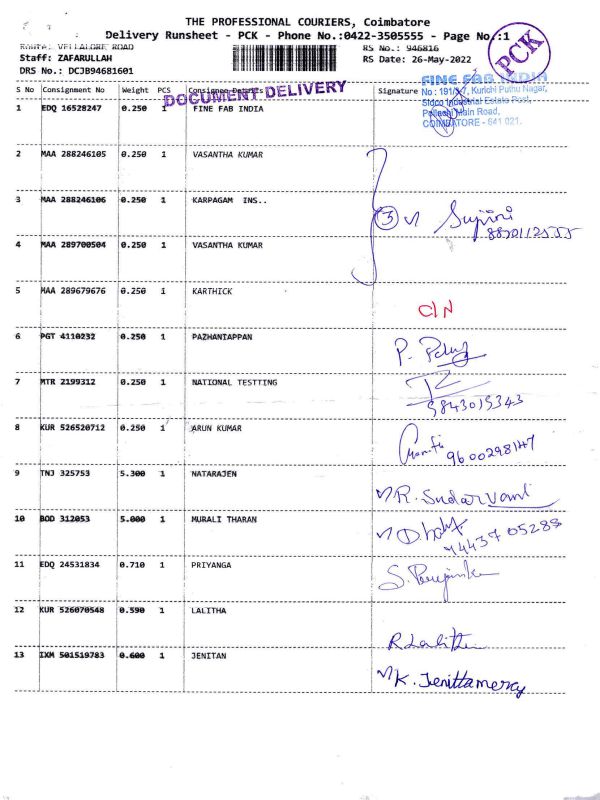 THE PROFESSIONAL COURIERS, Coimbatore
Delivery Runsheet - PCK - Phone No.:0422-3505555 - Page No.:1
Route: VELLALORE ROAD RS No.: 946816
Staff: ZAFARULLAH RS Date: 26-May-2022
DRS No.: DCJB94681601
PCK
S No Consignment No Weight PCS Consignee Details Signature
DOCUMENT DELIVERY
FINE FAB INDIA
No : 191/ Kurichi Puthu Nagar,
Sidco Industrial Estate Post,
Pollachi Main Road,
COIMBATORE - 641 021.
1 EDQ 16528247 0.250 1 FINE FAB INDIA
2 MAA 288246105 0.250 1 VASANTHA KUMAR
3 MAA 288246106 0.250 1 KARPAGAM INS.. 3
4 MAA 289700504 0.250 1 VASANTHA KUMAR
5 MAA 289679676 0.250 1 KARTHICK C/N
6 PGT 4110232 0.250 1 PAZHANIAPPAN P.
7 MTR 2199312 0.250 1 NATIONAL TESTTING
9843015343
8 KUR 526520712 0.250 1 ARUN KUMAR
9600298147
9 TNJ 325753 5.300 1 NATARAJEN R. Sudarvani
10 BOD 312053 5.000 1 MURALI THARAN
94437 05288
11 EDQ 24531834 0.710 1 PRIYANGA S.
12 KUR 526070548 0.590 1 LALITHA R. Lalitha
13 IXM 501519783 0.600 1 JENITAN K. Jenittamercy